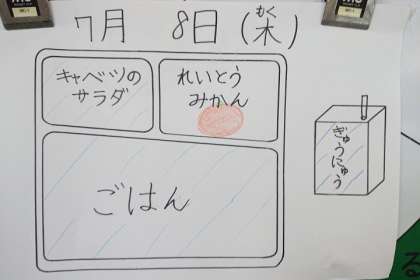 7月 8日(木)
もく
キャベツの
サラダ
れいとう
みかん
ぎゅうにゅう
ごはん
る